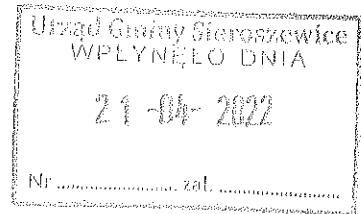 Urząd Gminy Sieroszewice
WPŁYNĘŁO DNIA
21 -04- 2022
Nr .................... zał. ....................